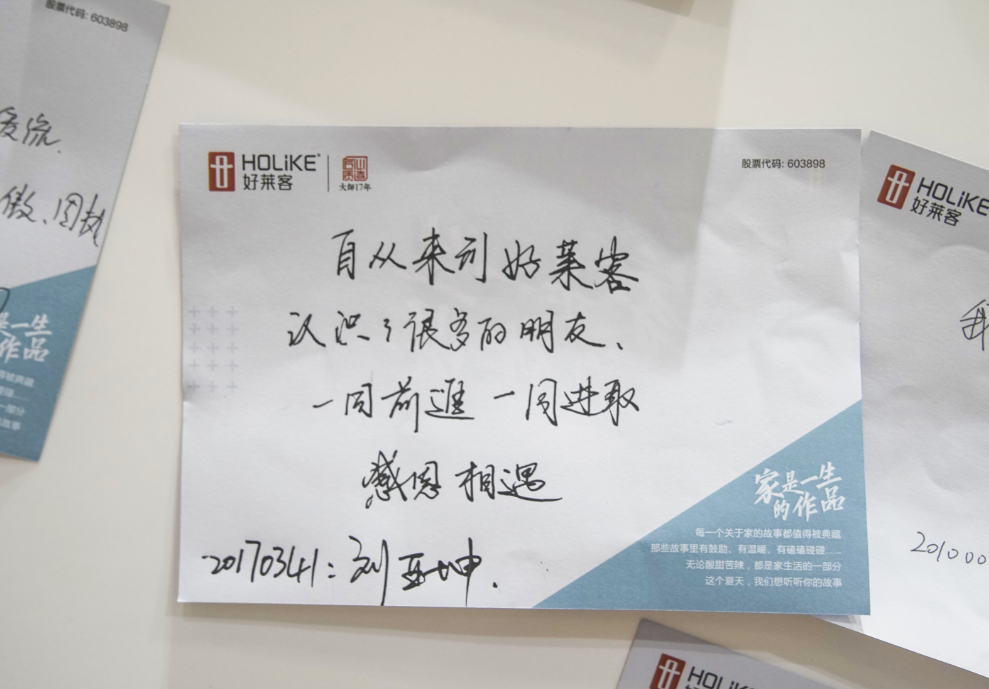 股票代码: 603898
傲、固执
是一生
作品
HOLiKE
好莱客
大师17年
股票代码: 603898
自从来到好莱客
认识了很多的朋友、
一同前進 一同进取
感恩 相遇
20170341: 刘亚坤.
家是一生
的作品
每一个关于家的故事都值得被典藏
那些故事里有鼓励、有温暖、有磕磕碰碰......
无论酸甜苦辣，都是家生活的一部分
这个夏天，我们想听听你的故事
HOLiKE
好莱客
我
201000
HOLiKE
好莱客